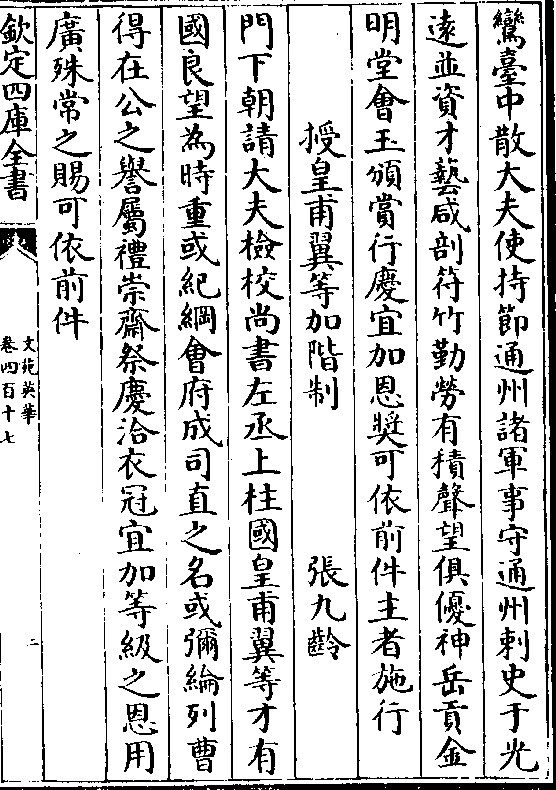 鸞臺中散大夫使持節通州諸軍事守通州刺史于光
遠並資才藝咸剖符竹勤勞有積聲望俱優神岳貢金
明堂會玉頒賞行慶宜加恩獎可依前件主者施行
授皇甫翼等加階制 張九齡
門下朝請大夫檢校尚書左丞上柱國皇甫翼等才有
國良望為時重或紀綱會府成司直之名或彌綸列曹
得在公之譽屬禮崇齋祭慶洽衣冠宜加等級之恩用
廣殊常之賜可依前件
欽定四庫全書
文苑英華
卷四百十七
二